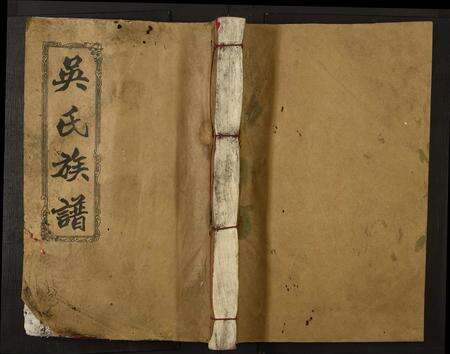 吳氏族譜